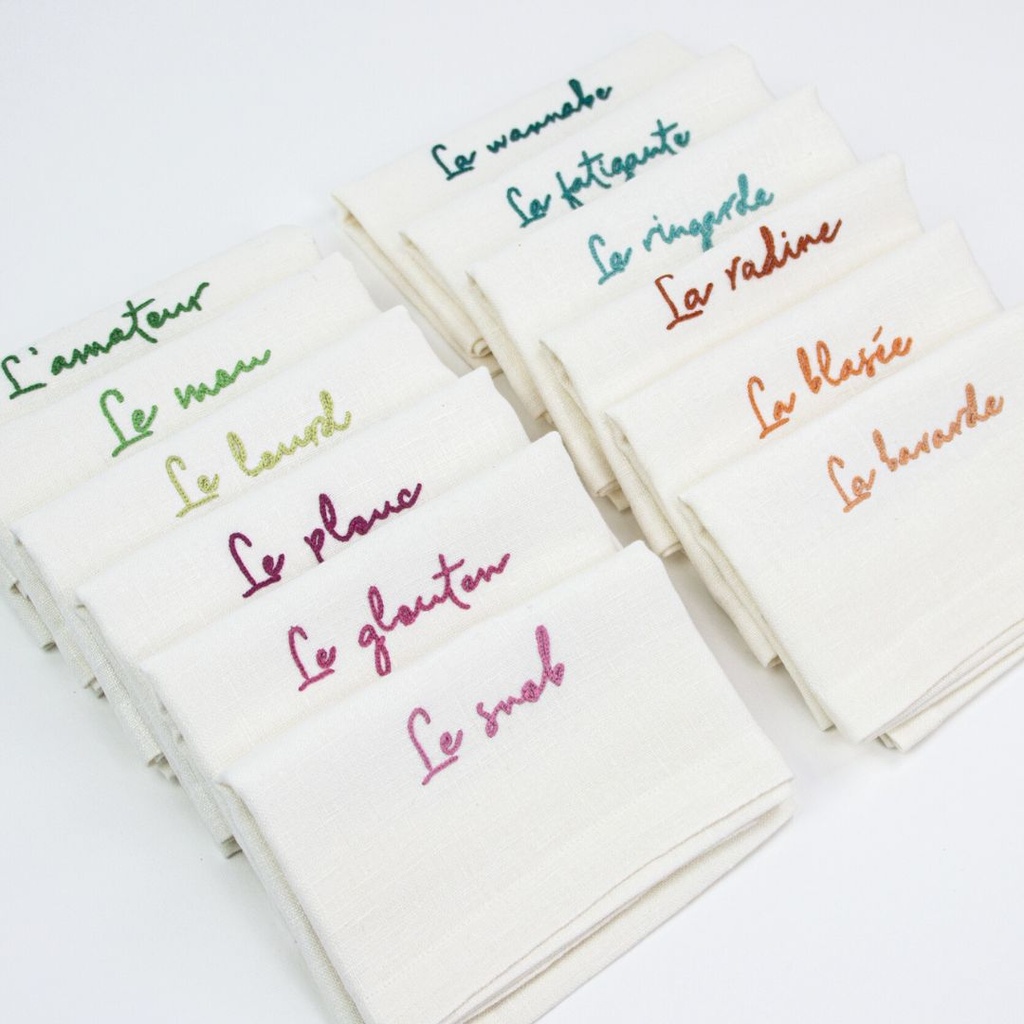 L'amateur
Le mou
Le lourd
Le plouc
Le glouton
Le snob
La wannabe
La fatigante
La ringarde
La radine
La blasée
La bavarde